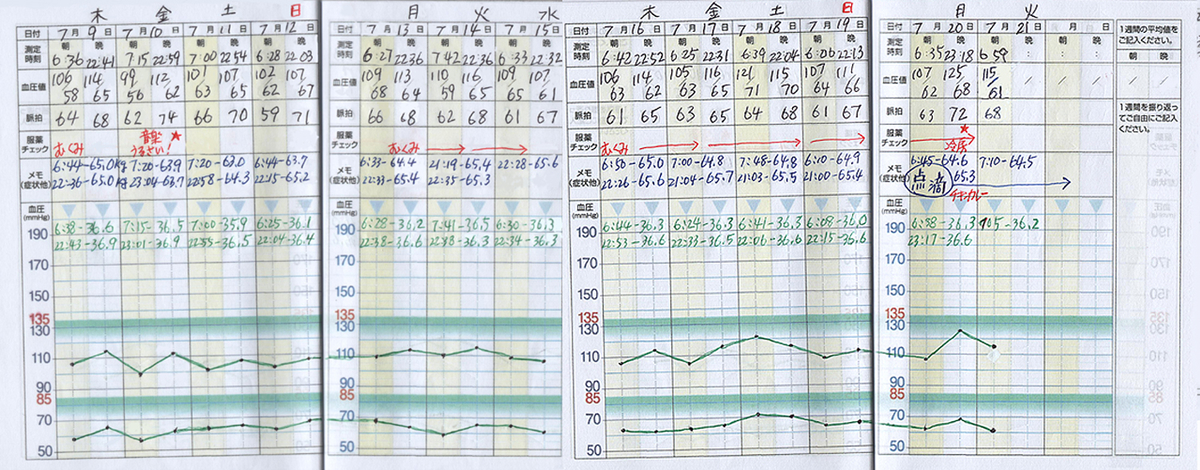 木 金 土 日
日付 7月9日 7月10日 7月11日 7月12日
朝 晩 朝 晩 朝 晩 朝 晩
測定時刻 6:36 22:41 7:15 22:59 7:00 22:54 6:28 22:03
血圧値 106 114 99 112 101 107 102 107
58 65 56 62 63 65 62 67
脈拍 64 68 62 74 66 70 59 71
服薬チェック むくみ 音楽うるさい! ★
メモ(症状他) 6:44-65.0kg 7:20-63.9 7:20-63.0 6:44-63.7
22:36-65.0kg 23:04-63.7 22:58-64.3 22:15-65.2
血圧(mmHg)
6:38-36.6 7:15-36.5 7:00-35.9 6:25-36.1
22:43-36.9 23:01-36.9 22:55-36.5 22:04-36.4
190
170
150
135
130
110
90
85
70
50
月 火 水
日付 7月13日 7月14日 7月15日
朝 晩 朝 晩 朝 晩
測定時刻 6:27 22:36 7:42 22:36 6:33 22:32
血圧値 109 113 110 116 109 107
68 64 59 65 65 61
脈拍 66 68 62 68 61 67
服薬チェック むくみ
メモ(症状他) 6:33-64.4 21:19-65.4 22:28-65.6
22:33-65.4 22:35-65.3
血圧(mmHg)
6:28-36.2 7:41-36.5 6:30-36.3
22:38-36.6 22:38-36.3 22:34-36.3
190
170
150
135
130
110
90
85
70
50
木 金 土 日
日付 7月16日 7月17日 7月18日 7月19日
朝 晩 朝 晩 朝 晩 朝 晩
測定時刻 6:42 22:52 6:25 22:31 6:39 22:04 6:06 22:13
血圧値 106 114 105 116 121 115 107 111
63 62 63 65 71 70 64 66
脈拍 61 65 63 65 64 68 61 67
服薬チェック むくみ
メモ(症状他) 6:50-65.0 7:00-64.8 7:48-64.8 6:10-64.9
22:26-65.6 21:04-65.7 21:03-65.5 21:00-65.4
血圧(mmHg)
6:44-36.3 6:24-36.3 6:41-36.3 6:08-36.0
22:53-36.6 22:33-36.5 22:06-36.6 22:15-36.6
190
170
150
135
130
110
90
85
70
50
月 火
日付 7月20日 7月21日 月 日 月 日
朝 晩 朝 晩 朝 晩 朝 晩
測定時刻 6:35 23:18 6:59
血圧値 107 125 115
62 68 61
脈拍 63 72 68
服薬チェック ★
メモ(症状他) 6:45-64.6 7:10-64.5
点滴 65.3
チキンカレー
血圧(mmHg)
6:38-36.3 7:05-36.2
23:17-36.6
190
170
150
135
130
110
90
85
70
50
1週間の平均値をご記入ください。
朝 晩
1週間を振り返ってご自由にご記入ください。